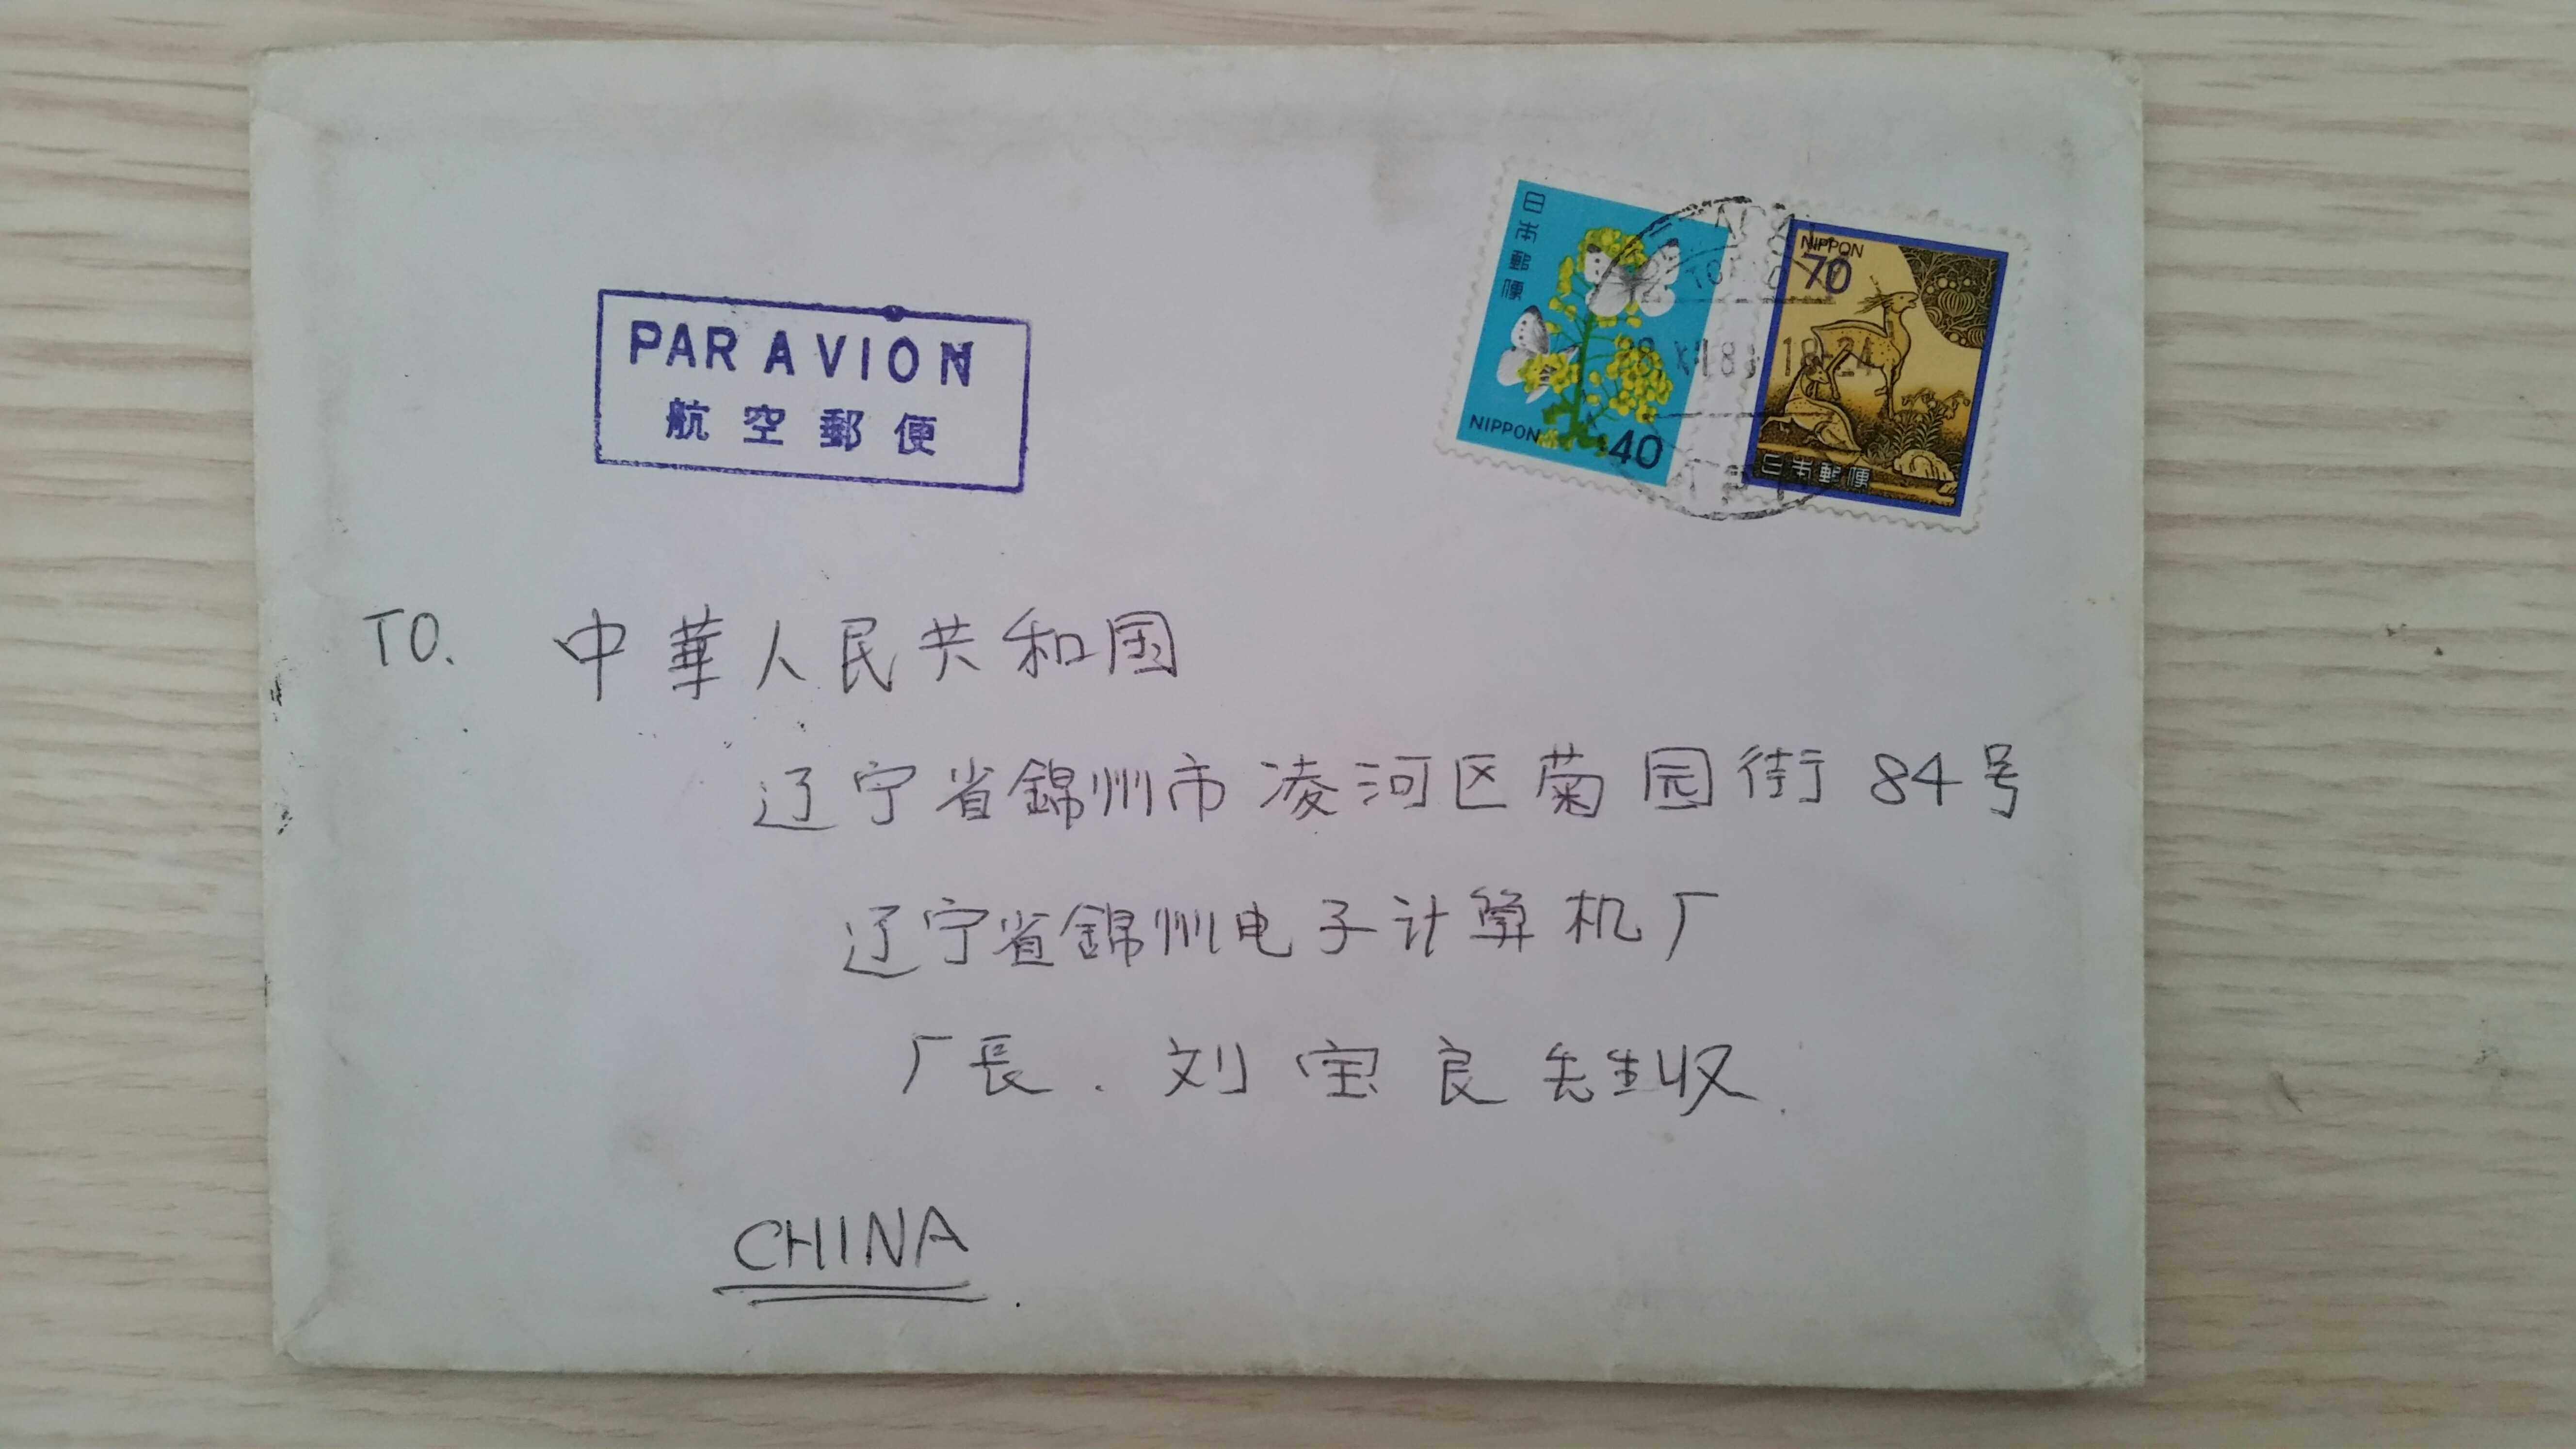 日本郵便
NIPPON
40
NIPPON
70
日本郵便
18-24
PAR AVION
航空郵便
TO. 中華人民共和国
辽宁省錦州市凌河区菊园街84号
辽宁省錦州电子计算机厂
厂長.刘宝良先生收.
CHINA